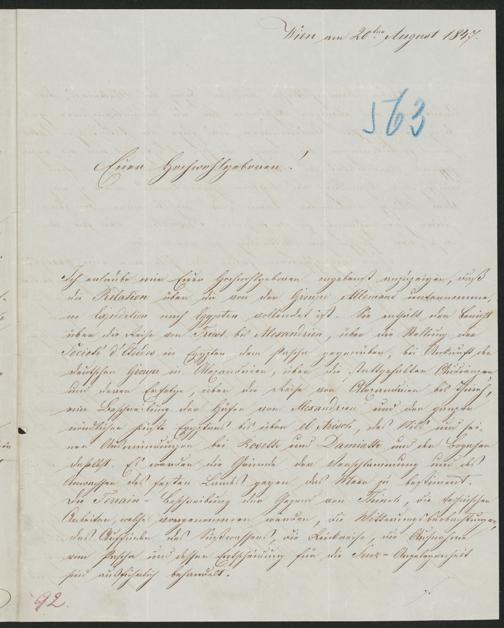 Wien am 20ten August 1847.
563
Euer Hochwohlgeboren!
Ich erlaube mir Euer Hochwohlgeboren ergebenst anzuzeigen, daß
die Relation über die von der Groupe Allemand unternommene
Expedition nach Egypten vollendet ist. Sie enthält den Bericht
über die Reise von Triest bis Alexandrien, über die Stellung der
Société d'Etudes in Egypten dem Pascha gegenüber, bei Ankunft der
deutschen Groupe in Alexandrien, über die stattgehabten
und deren Erfolge, über die Reise von Alexandrien bis Thineh,
eine Beschreibung der Häfen von Alexandrien und der ganzen
nördlichen Küste Egyptens bis über el Arisch, des Nils und sei-
ner Ausmündungen bei Rosette und Damiette und der Bogasse
daselbst. Es wurden die Gründe der Verschlammung und des
Anwachsen des festen Landes gegen das Meer zu bestimmt.
Die Terrain-Beschreibung der Gegend von Thineh, die technischen
Arbeiten, welche vorgenommen wurden, die Witterungsbeobachtungen,
das Auffinden des Süßwassers, die Rückreise, die Aufnahme
vom Pascha und dessen Entscheidung für die Suez-Angelegenheit
sind ausführlich behandelt.
92.